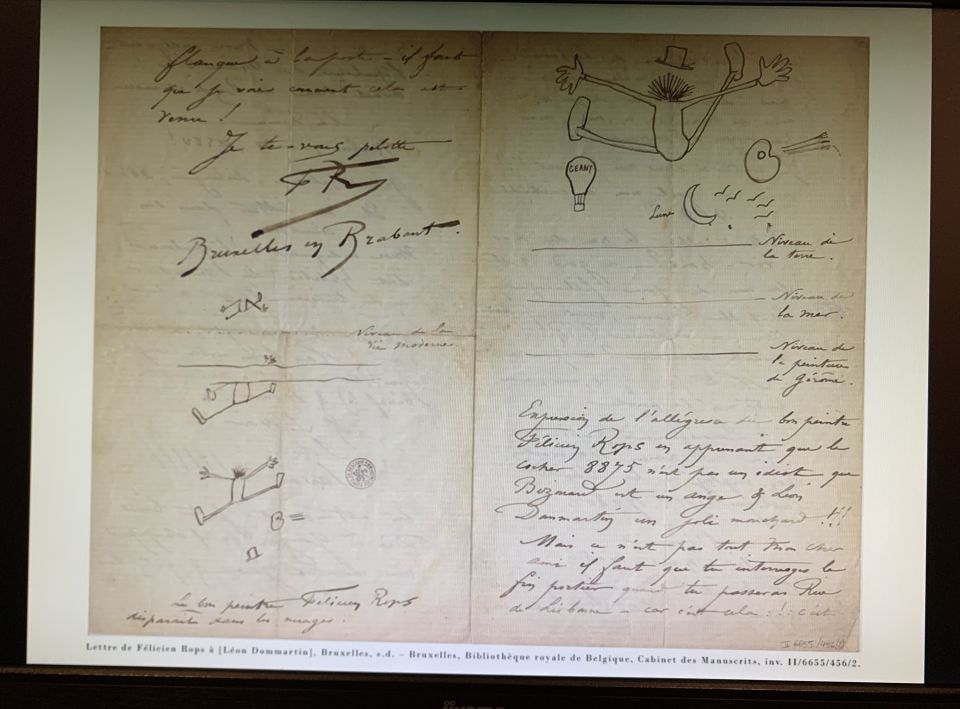 flanqué à la porte – il faut
que je voie comment cela est
venu !
Je te-vous pelotte
FR
Bruxelles en Brabant.
Niveau de la
vie moderne.
Le bon peintre Félicien Rops
disparait dans les nuages.
GEANT
Lune
Niveau de
la terre.
Niveau de
la mer.
Niveau de
la peinture
de Gérôme.
Expression de l'allégresse du bon peintre
Félicien Rops en apprenant que le
cocher 8845 n'est pas un idiot que
est un ange & Léon
Dommartin un joli mouchard !!!
Mais ce n'est pas tout mon cher
ami il faut que tu interroges le
fin portier quand tu passeras Rue
de Lisbonne – car c'est cela : ! c'est
II 6655/456/2
Lettre de Félicien Rops à [Léon Dommartin], Bruxelles, s.d. – Bruxelles, Bibliothèque royale de Belgique, Cabinet des Manuscrits, inv. II/6655/456/2.